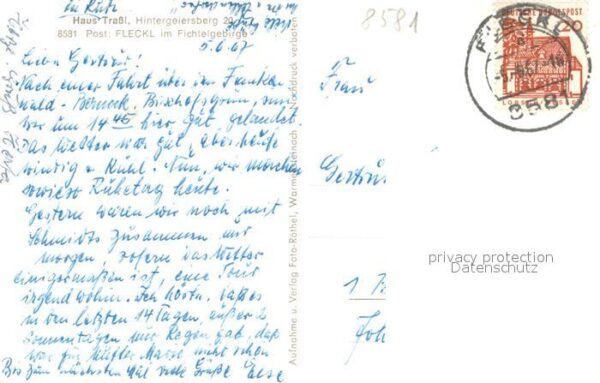 in Ruhe
Haus Traßl, Hintergeiersberg 20
8581 Post: FLECKL im Fichtelgebirge
5.6.67
Nach einer Fahrt über den Franken-
wald - Berneck, Bischofsgrün, sind
wir um 14 45 hier gut gelandet.
Das Wetter war gut, aber heute
windig + kühl. Nun, wir machen
sowieso Ruhetag heute.
Gestern waren wir noch mit
Schmidts zusammen und
morgen, sofern das Wetter
einigermaßen ist, eine Tour
irgendwohin. Ich hörte, daß es
in den letzten 14 Tagen, außer 2
Sonnentagen nur Regen gab, das
war zu
Bis zum nächsten Mal viele Grüße
Aufnahme u. Verlag Foto-Röthel, Warmensteinach
Nachdruck verboten
8581
DEUTSCHE BUNDESPOST
20
FLECKL
8581
Frau
1 B
Joh
privacy protection
Datenschutz